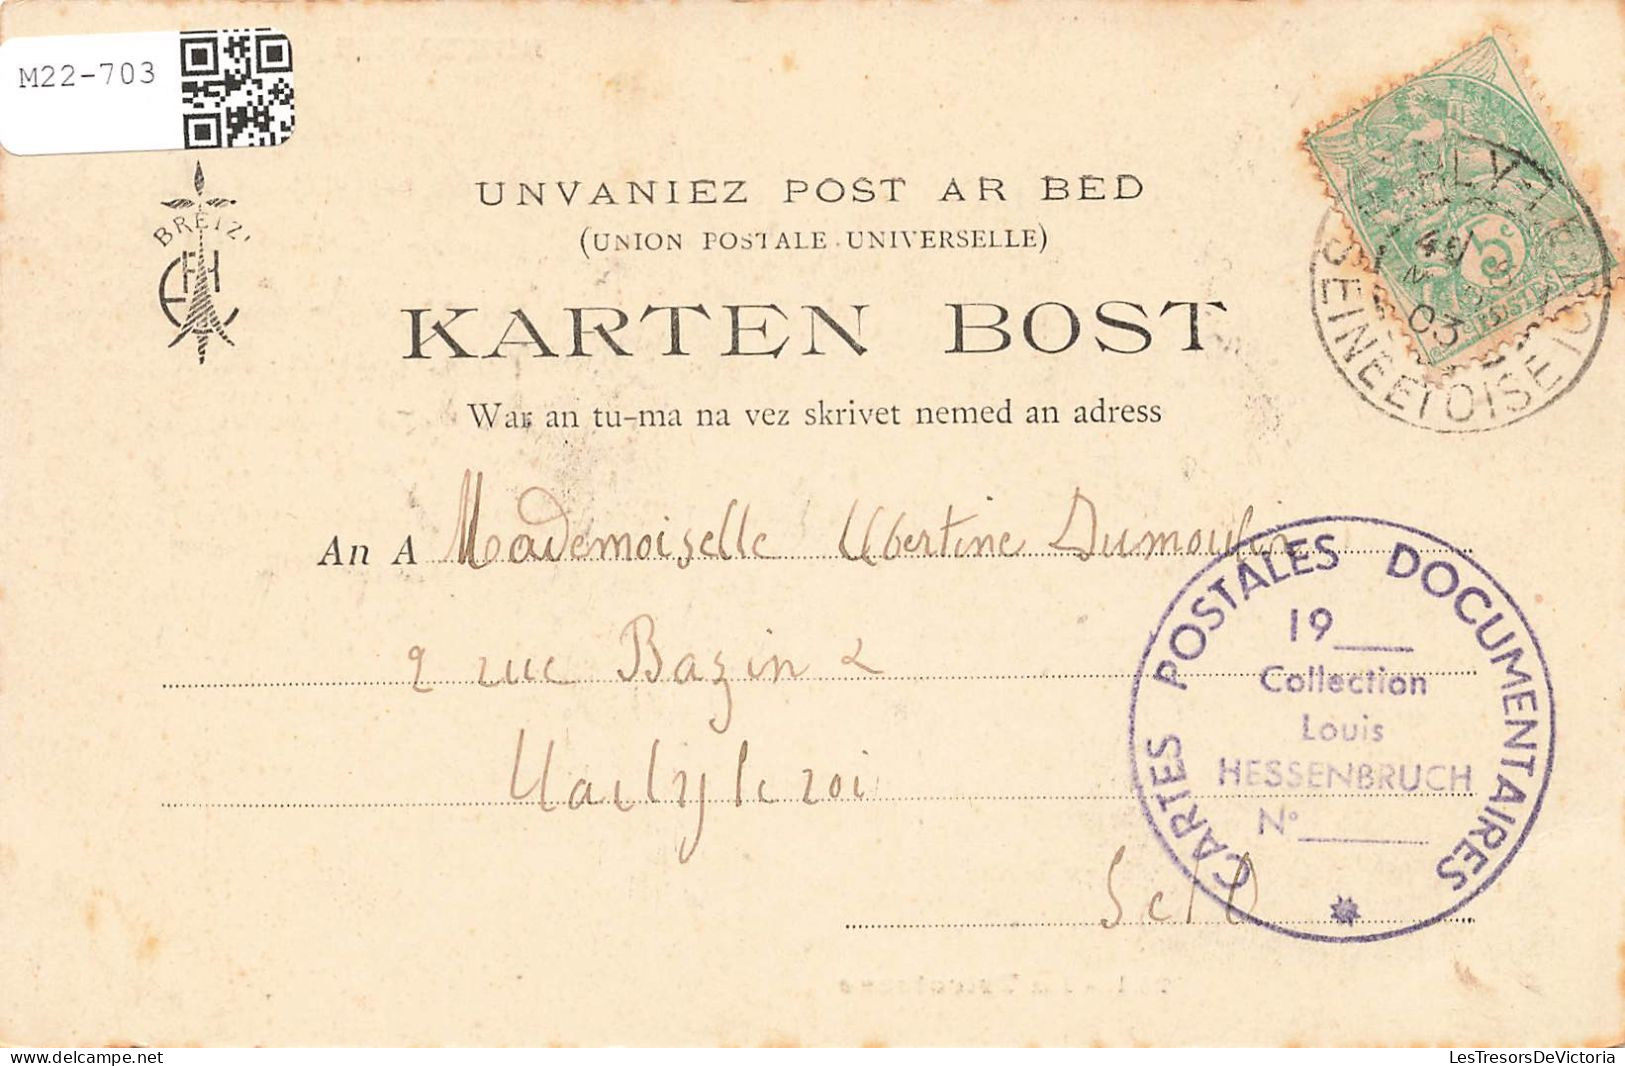 M22-703
BREIZ
UNVANIEZ POST AR BED
(UNION POSTALE UNIVERSELLE)
KARTEN BOST
War an tu-ma na vez skrivet nemed an adress
An A Mademoiselle Ubertine Dumoulin
2 rue Bazin 2
Marly le roi
S et O
5c
POSTES
MARLY-LE-ROI
03
SEINE ET OISE
CARTES POSTALES DOCUMENTAIRES
19___
Collection
Louis
HESSENBRUCH
N°______
LesTresorsDeVictoria